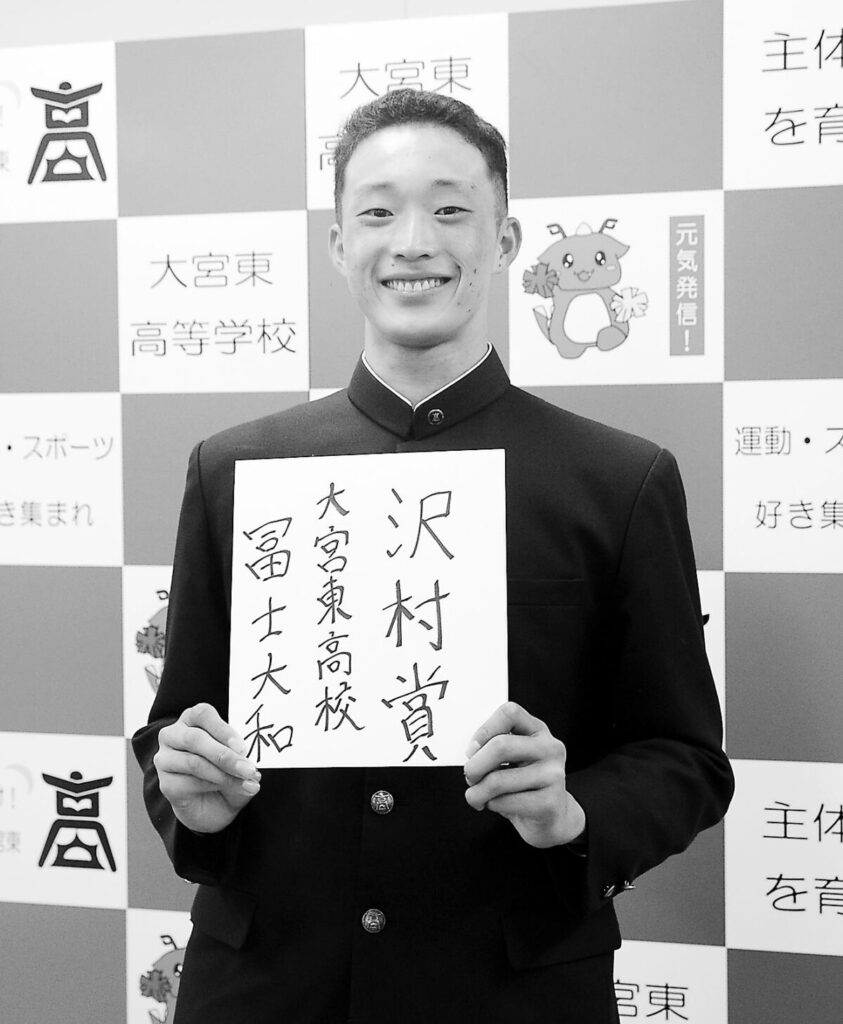 大宮東
高
主体
を育
高
大宮東
高等学校
元気発信！
・スポーツ
き集まれ
運動・ス
好き集
沢村賞
大宮東高校
冨士大和
高
主体
を育
宮東